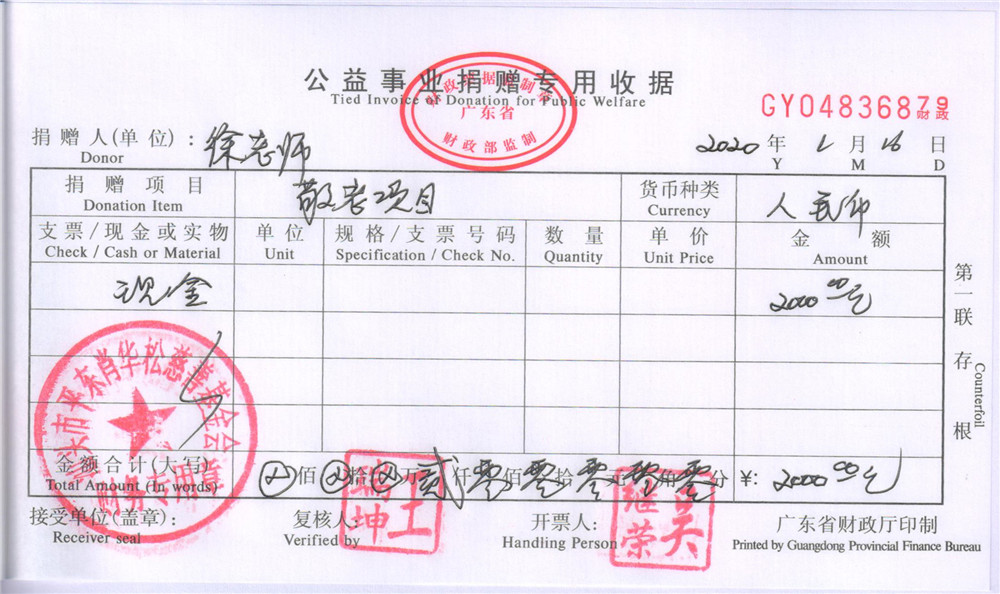 公益事业捐赠专用收据
Tied Invoice of Donation for Public Welfare
财政票据监制章
广东省
财政部监制
GY04836879
财政
捐赠人(单位)：徐老师
Donor
2020年1月16日
Y M D
捐赠项目 敬老项目 货币种类 人民币
Donation Item Currency
支票/现金或实物 单位 规格/支票号码 数量 单价 金额
Check / Cash or Material Unit Specification / Check No. Quantity Unit Price Amount
现金 2000.00元
第一联存根
Counterfoil
汕头市平东肖华松慈善基金会
财务专用章
金额合计(大写) 佰 拾 万 贰仟零佰零拾零元零角零分 ¥: 2000.00元
Total Amount (In words)
接受单位(盖章)： 复核人: 开票人: 广东省财政厅印制
Receiver seal Verified by Handling Person Printed by Guangdong Provincial Finance Bureau
坤
继荣